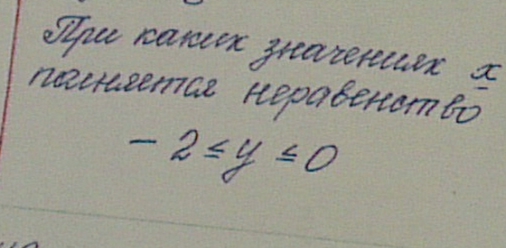 При каких значениях x
полняется неравенство
- 2 ≤ y ≤ 0